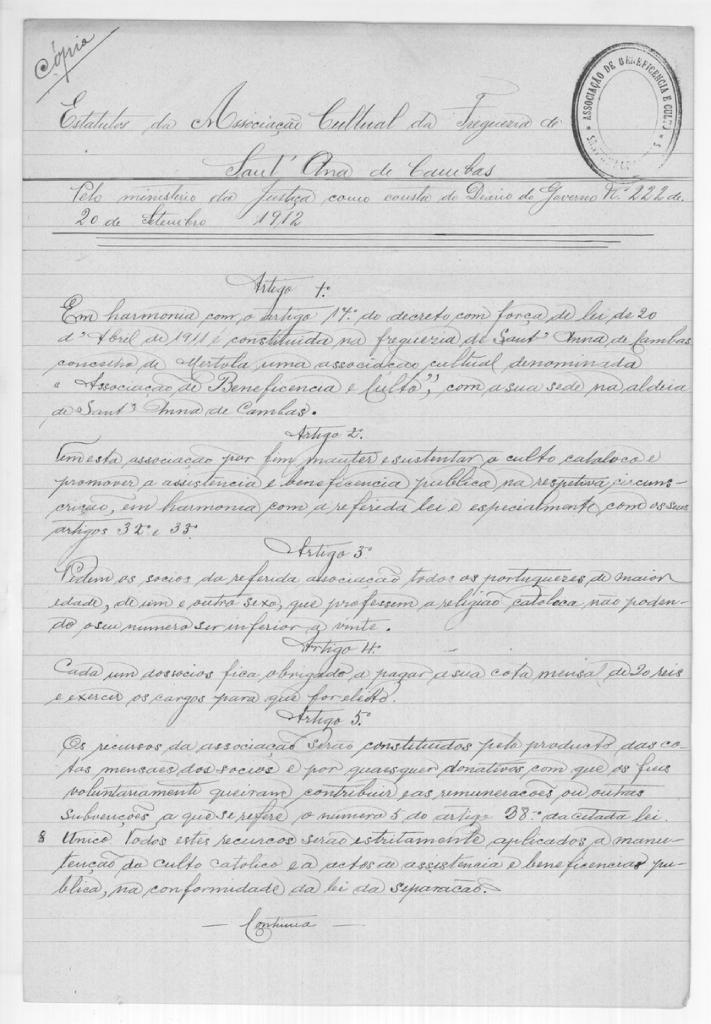 Cópia
ASSOCIAÇÃO DE BENEFICENCIA E CULTO
Estatutos da Associação Cultual da Freguezia de
Sant' Ana de Cambas
Pelo ministerio da Justiça como consta do Diario do Governo N.º 222 de
20 de Setembro 1912
Artigo 1.º
Em harmonia com o artigo 17.º do decreto com força de lei de 20
d' Abril de 1911 é constituida na freguezia de Sant' Anna de Cambas
concelho de Mertola uma associação cultual denominada
"Associação de Beneficencia e Culto", com a sua sede na aldeia
de Sant' Anna de Cambas.
Artigo 2.º
Tem esta associação por fim manter e sustentar o culto cataloco e
promover a assistencia e beneficencia publica na respetiva circuns-
crição, em harmonia com a referida lei e especialmente com os seus
artigos 32.º e 33.º
Artigo 3.º
Podem os socios da referida associação todos os portuguezes, de maior
edade, de um e outro sexo, que professem a religião catoloca, não poden-
do o seu numero ser inferior a vinte.
Artigo 4.º
Cada um dos socios fica obrigado a pagar a sua cota mensal de 20 reis
e exercer os cargos para que for eleito.
Artigo 5.º
Os recursos da associação serão constituidos pelo producto das co-
tas mensaes dos socios e por quaesquer donativos com que os fieis
voluntariamente queiram contribuir e as remunerações ou outras
subvenções a que se refere o numero 5 do artigo 38.º da citada lei.
§ Unico Todos estes recursos serão estritamente aplicados a manu-
tenção do culto catolico e á actos de assistencia e beneficencias pu-
blica, na conformidade da lei da separação.
— Continua —